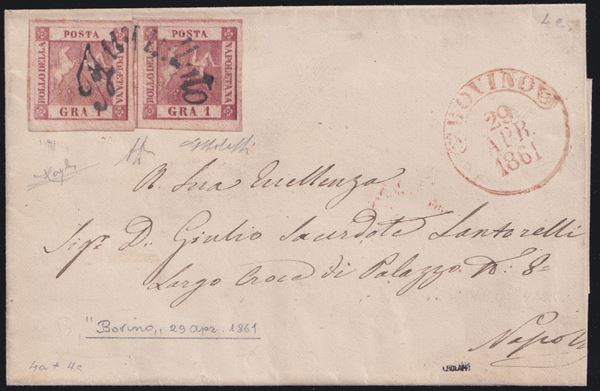 4c.
POSTA
BOLLO DELLA
NAPOLETANA
GRA 1
POSTA
BOLLO DELLA
NAPOLETANA
GRA 1
Annullato
BOVINO
29
APR
1861
A Sua Eccellenza
Sigr D. Giulio Sacerdote Santorelli
Largo Croce di Palazzo N: 8=
Napoli
"Bovino„ 29 apr. 1861
4a + 4c